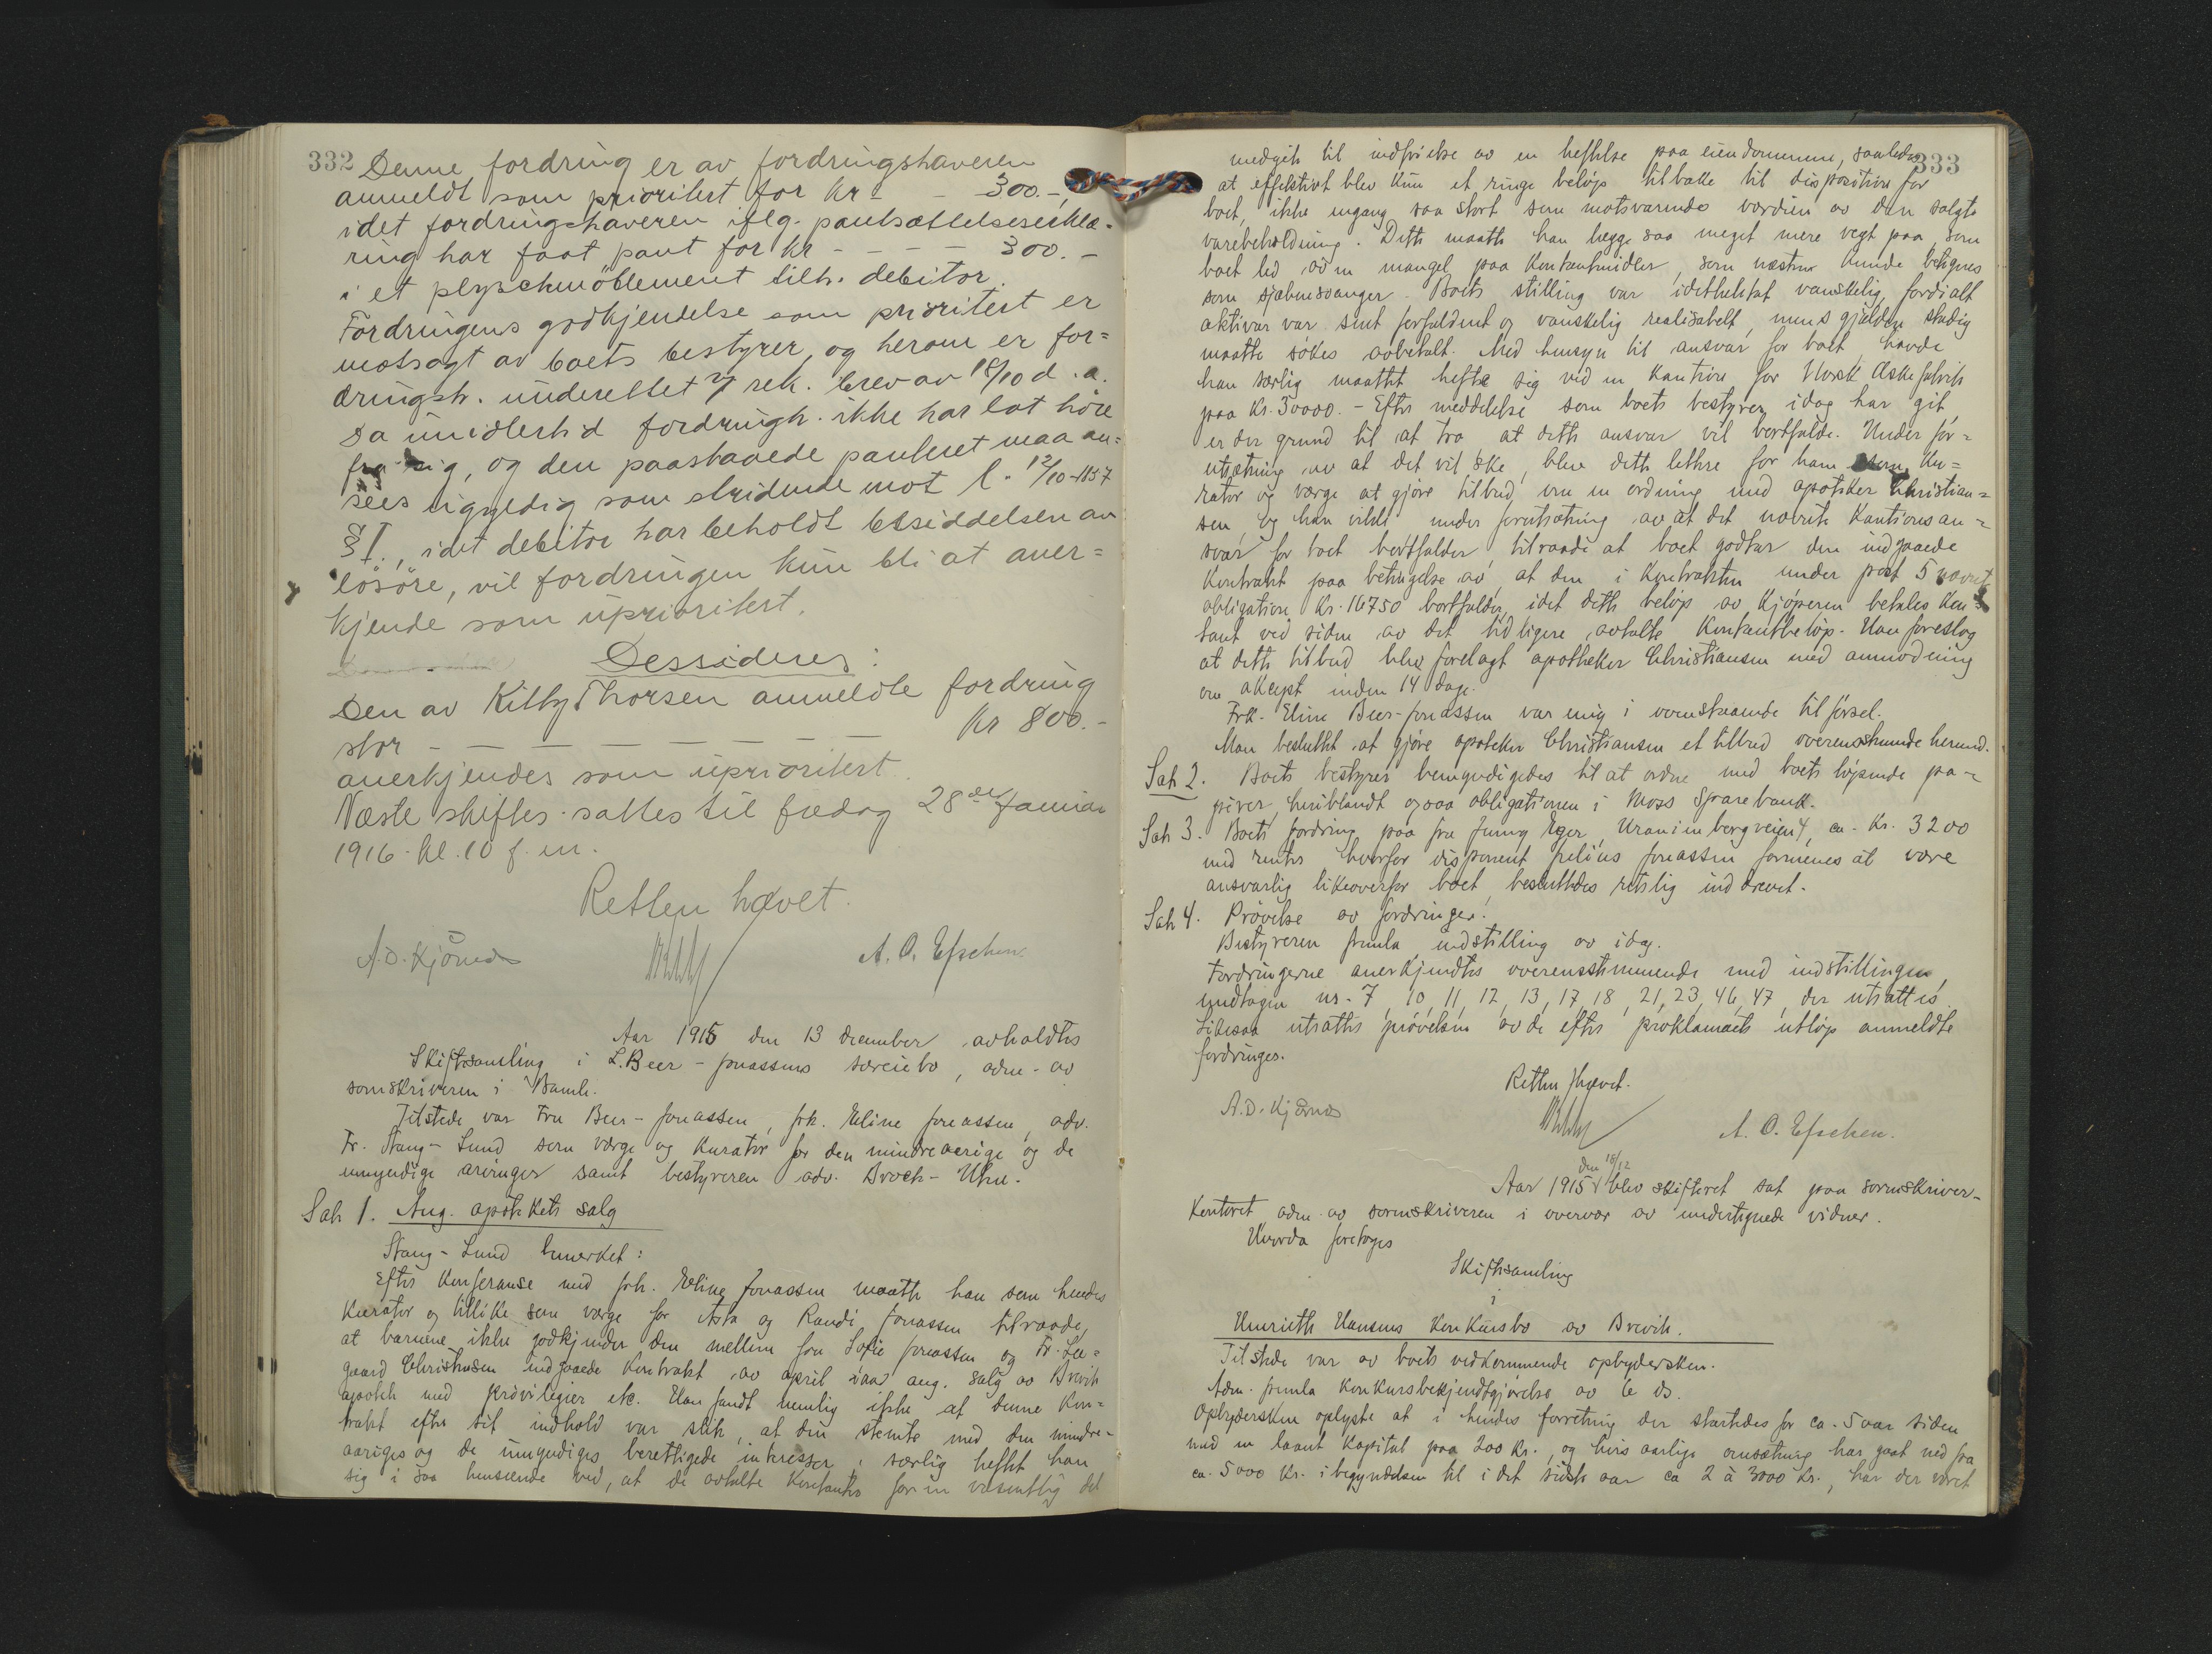 332
Denne fordring er av fordringshaveren
anmeldt som prioritert for kr - - 300.-,
idet fordringshaveren iflg. pantsættelseserklæ-
ring har faat pant for kr - - - - 300.-
i et plyschmöblement tilh. debitor.
Fordringens godkjendelse som prioritert er
motsagt av boets bestyrer, og herom er for=
dringsh. underettet v/ rek. brev av 18/10 d. a.
Da imidlertid fordringh. ikke har lat höre
fra sig, og den paastaaede panteret maa an=
sees ugyldig som stridende mot l. 12/10-1857
§1., idet debitor har beholdt besiddelsen av
lösöre, vil fordringen kun bli at aner=
kjende som uprioritert.
Dessideres:
Den av Kitty Thorsen anmeldte fordring
stor - - - - - - - kr 800.-
anerkjendes som uprioritert.
Næste skiftes. sattes til fredag 28de Januar
1916 - kl. 10 f. m.
Retten hævet.
A. D. Kjörnes A. O. Efschen.
Aar 1915 den 13 december avholdtes
Skiftesamling i L. Beer-Jonassens særeiebo, adm. av
sorenskriveren i Bamle.
Tilstede var Fru Beer-Jonassen, frk. Eline Jonassen, adv.
Fr. Stang-Lund som værge og kurator for den mindreaarige og de
umyndige arvinger samt bestyreren adv. Broch-Utne.
Sak 1. Ang. apotekets salg
Stang-Lund bemerket:
Efter konferanse med frk. Eline Jonassen maatte han som hendes
kurator og tillike som værge for Asta og Randi Jonassen tilraade,
at barnene ikke godkjender den mellem fru Sofie Jonassen og Fr. Lee=
gaard Christiansen indgaaede kontrakt av april iaar ang. salg av Brevik
apotek med privilegier etc. Han fandt nemlig ikke at denne kon=
trakt efter sit indhold var slik, at den stemte med den mindre-
aariges og de umyndiges berettigede interesser, særlig heftet han
sig i saa henseende ved, at de avtalte kontanter for en væsentlig del
333
medgik til indfrielse av en heftelse paa eiendommene, saaledes
at effektivt blev kun et ringe beløp tilbake til disposition for
boet, ikke engang saa stort som motsvarende værdien av den solgte
varebeholdning. Dette maatte han lægge saa meget mere vegt paa som
boet led av en mangel paa kontantmidler, som næsten kunde betegnes
som sjebnesvanger. Boets stilling var idethele tat vanskelig, fordi alt
aktivar var sent forfaldent og vanskelig realisabelt, mens gjælden stadig
maatte søkes avbetalt. Med hensyn til ansvar for boet havde
han særlig maattet hefte sig ved en kaution for Norsk Æskefabrik
paa kr. 30000.- Efter meddelelse som boets bestyrer idag har git,
er der grund til at tro at dette ansvar vil bortfalde. Under for=
utsætning av at det vil ske, blev dette lettere for ham som ku=
rator og værge at gjøre tilbud om en ordning med apoteker Christian=
sen og han vilde under forutsætning av at det nævnte kautionsan=
svar for boet bortfalder tilraade at boet godtar den indgaaede
kontrakt paa betingelse av at den i kontrakten under post 5 nævnte
obligation kr. 16750 bortfalder, idet dette beløp av kjøperen betales kon=
tant ved siden av det tidligere avtalte kontantbeløp. Han foreslog
at dette tilbud blev forelagt apotheker Christiansen med anmodning
om akcept inden 14 dage.
Frk. Eline Beer-Jonassen var enig i ovenstaaende tilførsel.
Man besluttet at gjøre apoteker Christiansen et tilbud overensstemmende hermed.
Sak 2. Boets bestyrer bemyndigedes til at ordne med boets løpende pa=
pirer, heriblandt ogsaa obligationen i Moss Sparebank.
Sak 3. Boets fordring paa fru Jenny Eger, Uranienborgveien 4, ca. kr. 3200
med renter, hvorfor disponent Julius Jonassen formenes at være
ansvarlig likeoverfor boet, besluttedes retslig inddrevet.
Sak 4. Prövelse av fordringer.
Bestyreren fremla indstilling av idag.
Fordringerne anerkjendtes overensstemmende med indstillingen,
undtagen nr. 7, 10, 11, 12, 13, 17, 18, 21, 23, 46, 47, der utsattes.
Likesaa utsattes prövelsen av de efter proklamaets utløp anmeldte
fordringer.
Retten hævet.
A. D. Kjørnes A. O. Efschen.
den 18/12
Aar 1915 blev skifteret sat paa sorenskriver-
kontoret adm. av sorenskriveren i overvær av undertegnede vidner.
Hvorda foretoges
Skiftesamling
i
Henriette Hansens konkursbo av Brevik.
Tilstede var av boets vedkommende opbydersken.
Adm. fremla konkursbekjendtgjørelse av 6 ds.
Opbydersken oplyste at i hendes forretning der startedes for ca. 5 aar siden
med en laant kapital paa 200 kr., og hvis aarlige omsætning har gaat ned fra
ca. 5000 kr. i begyndelsen til i det sidste aar ca 2 à 3000 kr., har der været